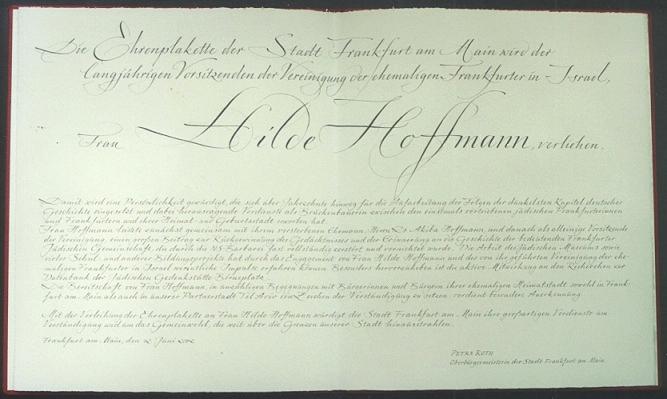 Die Ehrenplakette der Stadt Frankfurt am Main wird der
langjährigen Vorsitzenden der Vereinigung der ehemaligen Frankfurter in Israel,
Frau Hilde Hoffmann, verliehen.
Damit wird eine Persönlichkeit gewürdigt, die sich über Jahrzehnte hinweg für die Aufarbeitung der Folgen der dunkelsten Kapitel deutscher
Geschichte eingesetzt und dabei herausragende Verdienste als Brückenbauerin zwischen den einstmals vertriebenen jüdischen Frankfurterinnen
und Frankfurtern und ihrer Heimat- und Geburtsstadt erworben hat.
Frau Hoffmann leistete zunächst gemeinsam mit ihrem verstorbenen Ehemann, Herrn Akiba Hoffmann, und danach als alleinige Vorsitzende
der Vereinigung, einen großen Beitrag zur Rückgewinnung des Gedächtnisses und der Erinnerung an die Geschichte der bedeutenden Frankfurter
Jüdischen Gemeinschaft, die durch die NS-Barbarei fast vollständig zerstört und vernichtet wurde. Die Arbeit des Jüdischen Museums sowie
vieler Schul- und anderer Bildungsprojekte hat durch das Engagement von Frau Hilde Hoffmann und der von ihr geführten Vereinigung der ehe-
maligen Frankfurter in Israel wesentliche Impulse erfahren können. Besonders hervorzuheben ist die aktive Mitwirkung an den Recherchen zur
Datenbank der Gedenkstätte Börneplatz.
Die Bereitschaft von Frau Hoffmann, in unzähligen Begegnungen mit Bürgerinnen und Bürgern ihrer ehemaligen Heimatstadt sowohl in Frank-
furt am Main als auch in unserer Partnerstadt Tel Aviv ein Zeichen der Verständigung zu setzen verdient besondere Anerkennung.
Mit der Verleihung der Ehrenplakette an Frau Hilde Hoffmann würdigt die Stadt Frankfurt am Main ihre großartigen Verdienste um
Verständigung und um das Gemeinwohl, die weit über die Grenzen unserer Stadt hinausstrahlen.
Frankfurt am Main, den Juni
PETRA ROTH
Oberbürgermeisterin der Stadt Frankfurt am Main